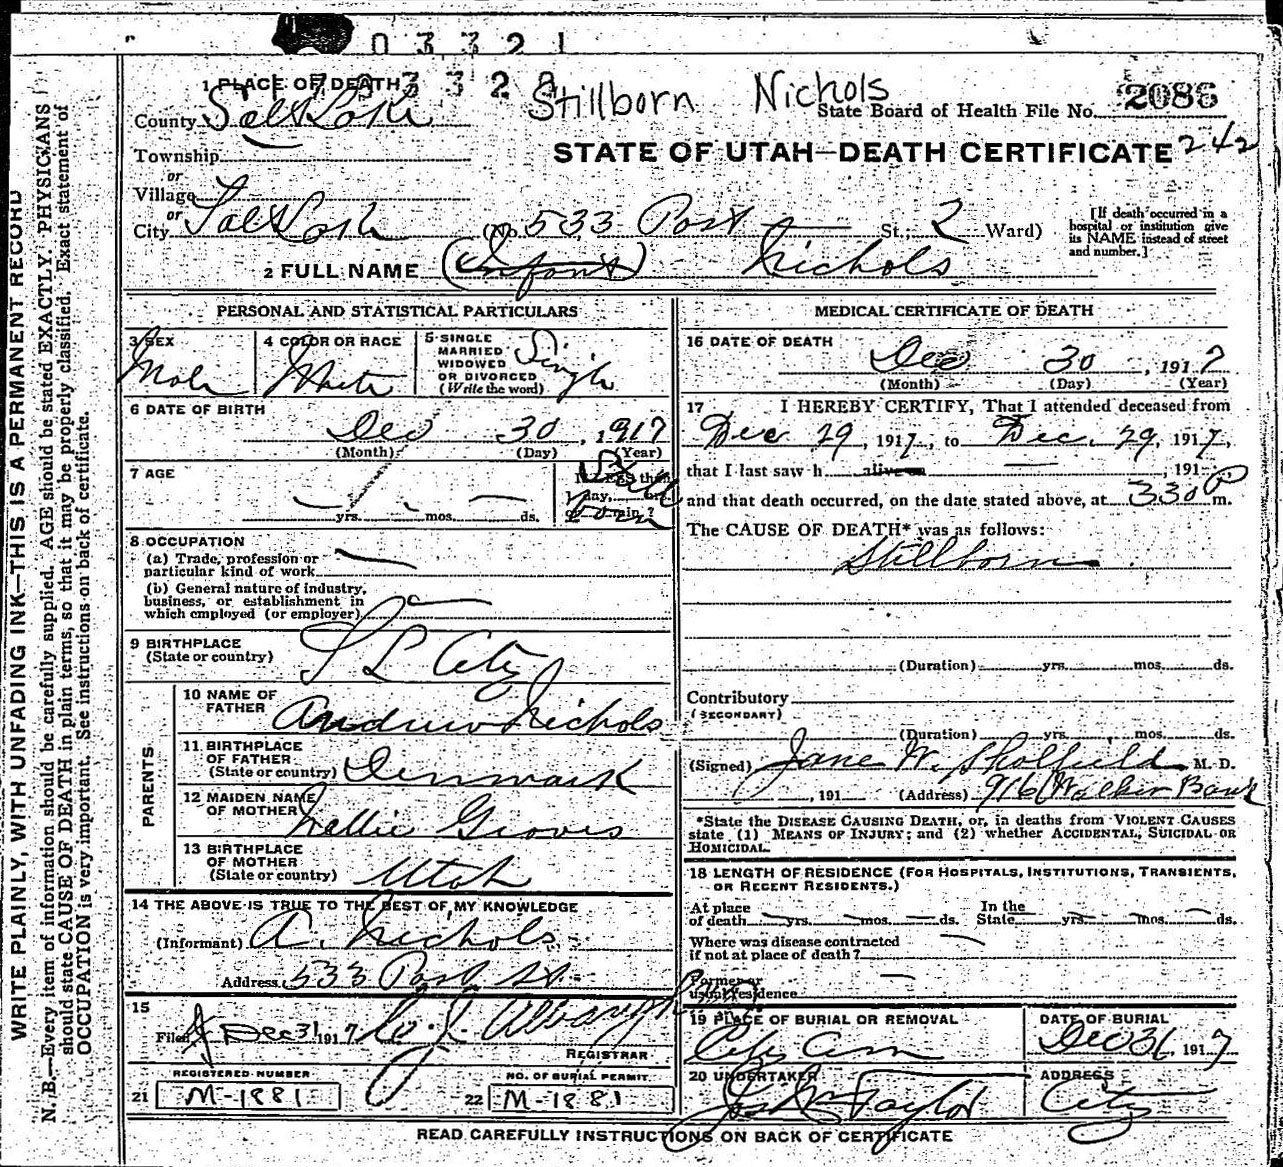 0 3 3 2 1
3 3 2
1 PLACE OF DEATH
Stillborn Nichols
County Salt Lake
State Board of Health File No. 2086
242
Township
STATE OF UTAH—DEATH CERTIFICATE
or
Village
or
City Salt Lake (No. 533 Post St.; 2 Ward)
[If death occurred in a
hospital or institution give
its NAME instead of street
and number.]
2 FULL NAME (Infant) Nichols
PERSONAL AND STATISTICAL PARTICULARS
3 SEX
Male
4 COLOR OR RACE
White
5 SINGLE
MARRIED
WIDOWED
OR DIVORCED
(Write the word)
Single
6 DATE OF BIRTH
Dec 30, 1917
(Month) (Day) (Year)
7 AGE
yrs. mos. ds.
If LESS than
1 day, or
min.?
Still
born
8 OCCUPATION
(a) Trade, profession or
particular kind of work
(b) General nature of industry,
business, or establishment in
which employed (or employer)
9 BIRTHPLACE
(State or country)
S L City
PARENTS
10 NAME OF
FATHER
Andrew Nichols
11 BIRTHPLACE
OF FATHER
(State or country)
Denmark
12 MAIDEN NAME
OF MOTHER
Nellie Groves
13 BIRTHPLACE
OF MOTHER
(State or country)
Utah
14 THE ABOVE IS TRUE TO THE BEST OF MY KNOWLEDGE
(Informant) A. Nichols
Address 533 Post St.
15
Filed Dec 31 1917
REGISTRAR
REGISTERED NUMBER
21 M-1881
NO. OF BURIAL PERMIT
22 M-1881
MEDICAL CERTIFICATE OF DEATH
16 DATE OF DEATH
Dec 30, 1917
(Month) (Day) (Year)
17 I HEREBY CERTIFY, That I attended deceased from
Dec 29, 1917, to Dec. 29, 1917,
that I last saw h alive on , 191
and that death occurred, on the date stated above, at 330 P m.
The CAUSE OF DEATH* was as follows:
Stillborn
(Duration) yrs. mos. ds.
Contributory
(SECONDARY)
(Duration) yrs. mos. ds.
(Signed) Jane W. Skolfield M. D.
, 191 (Address) 916 Walker Bank
*State the DISEASE CAUSING DEATH, or, in deaths from VIOLENT CAUSES
state (1) MEANS OF INJURY; and (2) whether ACCIDENTAL, SUICIDAL OR
HOMICIDAL.
18 LENGTH OF RESIDENCE (FOR HOSPITALS, INSTITUTIONS, TRANSIENTS,
OR RECENT RESIDENTS.)
At place
of death yrs. mos. ds.
In the
State yrs. mos. ds.
Where was disease contracted
if not at place of death?
Former or
usual residence
19 PLACE OF BURIAL OR REMOVAL
City Cem
DATE OF BURIAL
Dec 31 1917
20 UNDERTAKER
Jos Wm Taylor
ADDRESS
City
READ CAREFULLY INSTRUCTIONS ON BACK OF CERTIFICATE
WRITE PLAINLY, WITH UNFADING INK—THIS IS A PERMANENT RECORD
N. B.—Every item of information should be carefully supplied. AGE should be stated EXACTLY. PHYSICIANS
should state CAUSE OF DEATH in plain terms, so that it may be properly classified. Exact statement of
OCCUPATION is very important. See instructions on back of certificate.